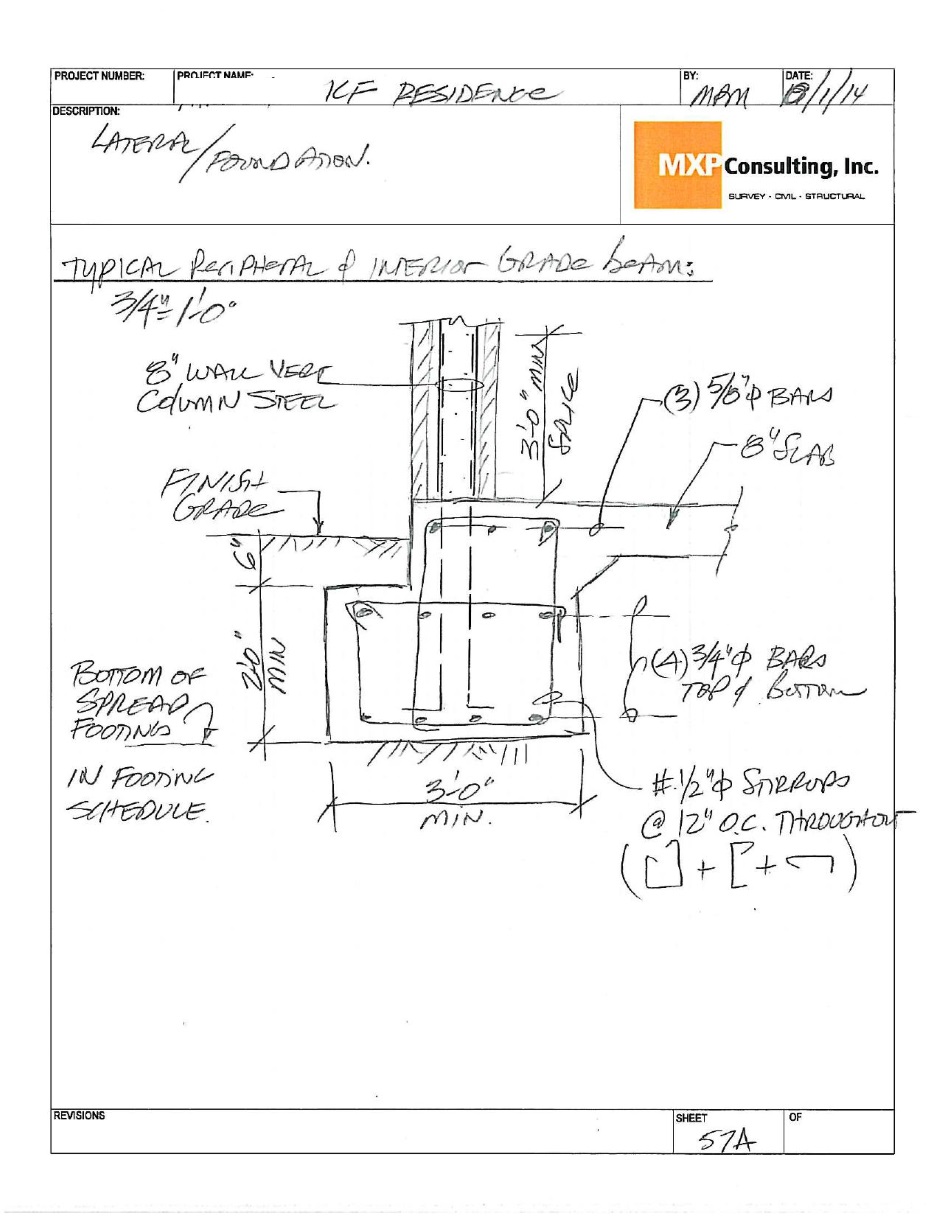 PROJECT NUMBER:
PROJECT NAME:
ICF RESIDENCE
BY:
MBM
DATE:
8/1/14
DESCRIPTION:
LATERAL/FOUNDATION.
MXP Consulting, Inc.
SURVEY • CIVIL • STRUCTURAL
TYPICAL PERIPHERAL & INTERIOR GRADE BEAM:
3/4"=1'-0"
8" WALL VERT
COLUMN STEEL
3'-0" MIN
SPLICE
(3) 5/8"ϕ BARS
8" SLAB
FINISH
GRADE
6"
2'-0"
MIN
BOTTOM OF
SPREAD
FOOTINGS
IN FOOTING
SCHEDULE.
(4) 3/4"ϕ BARS
TOP & BOTTOM
3'-0"
MIN.
# 1/2"ϕ STIRRUPS
@ 12" O.C. THROUGHOUT
( + + )
REVISIONS
SHEET
57A
OF